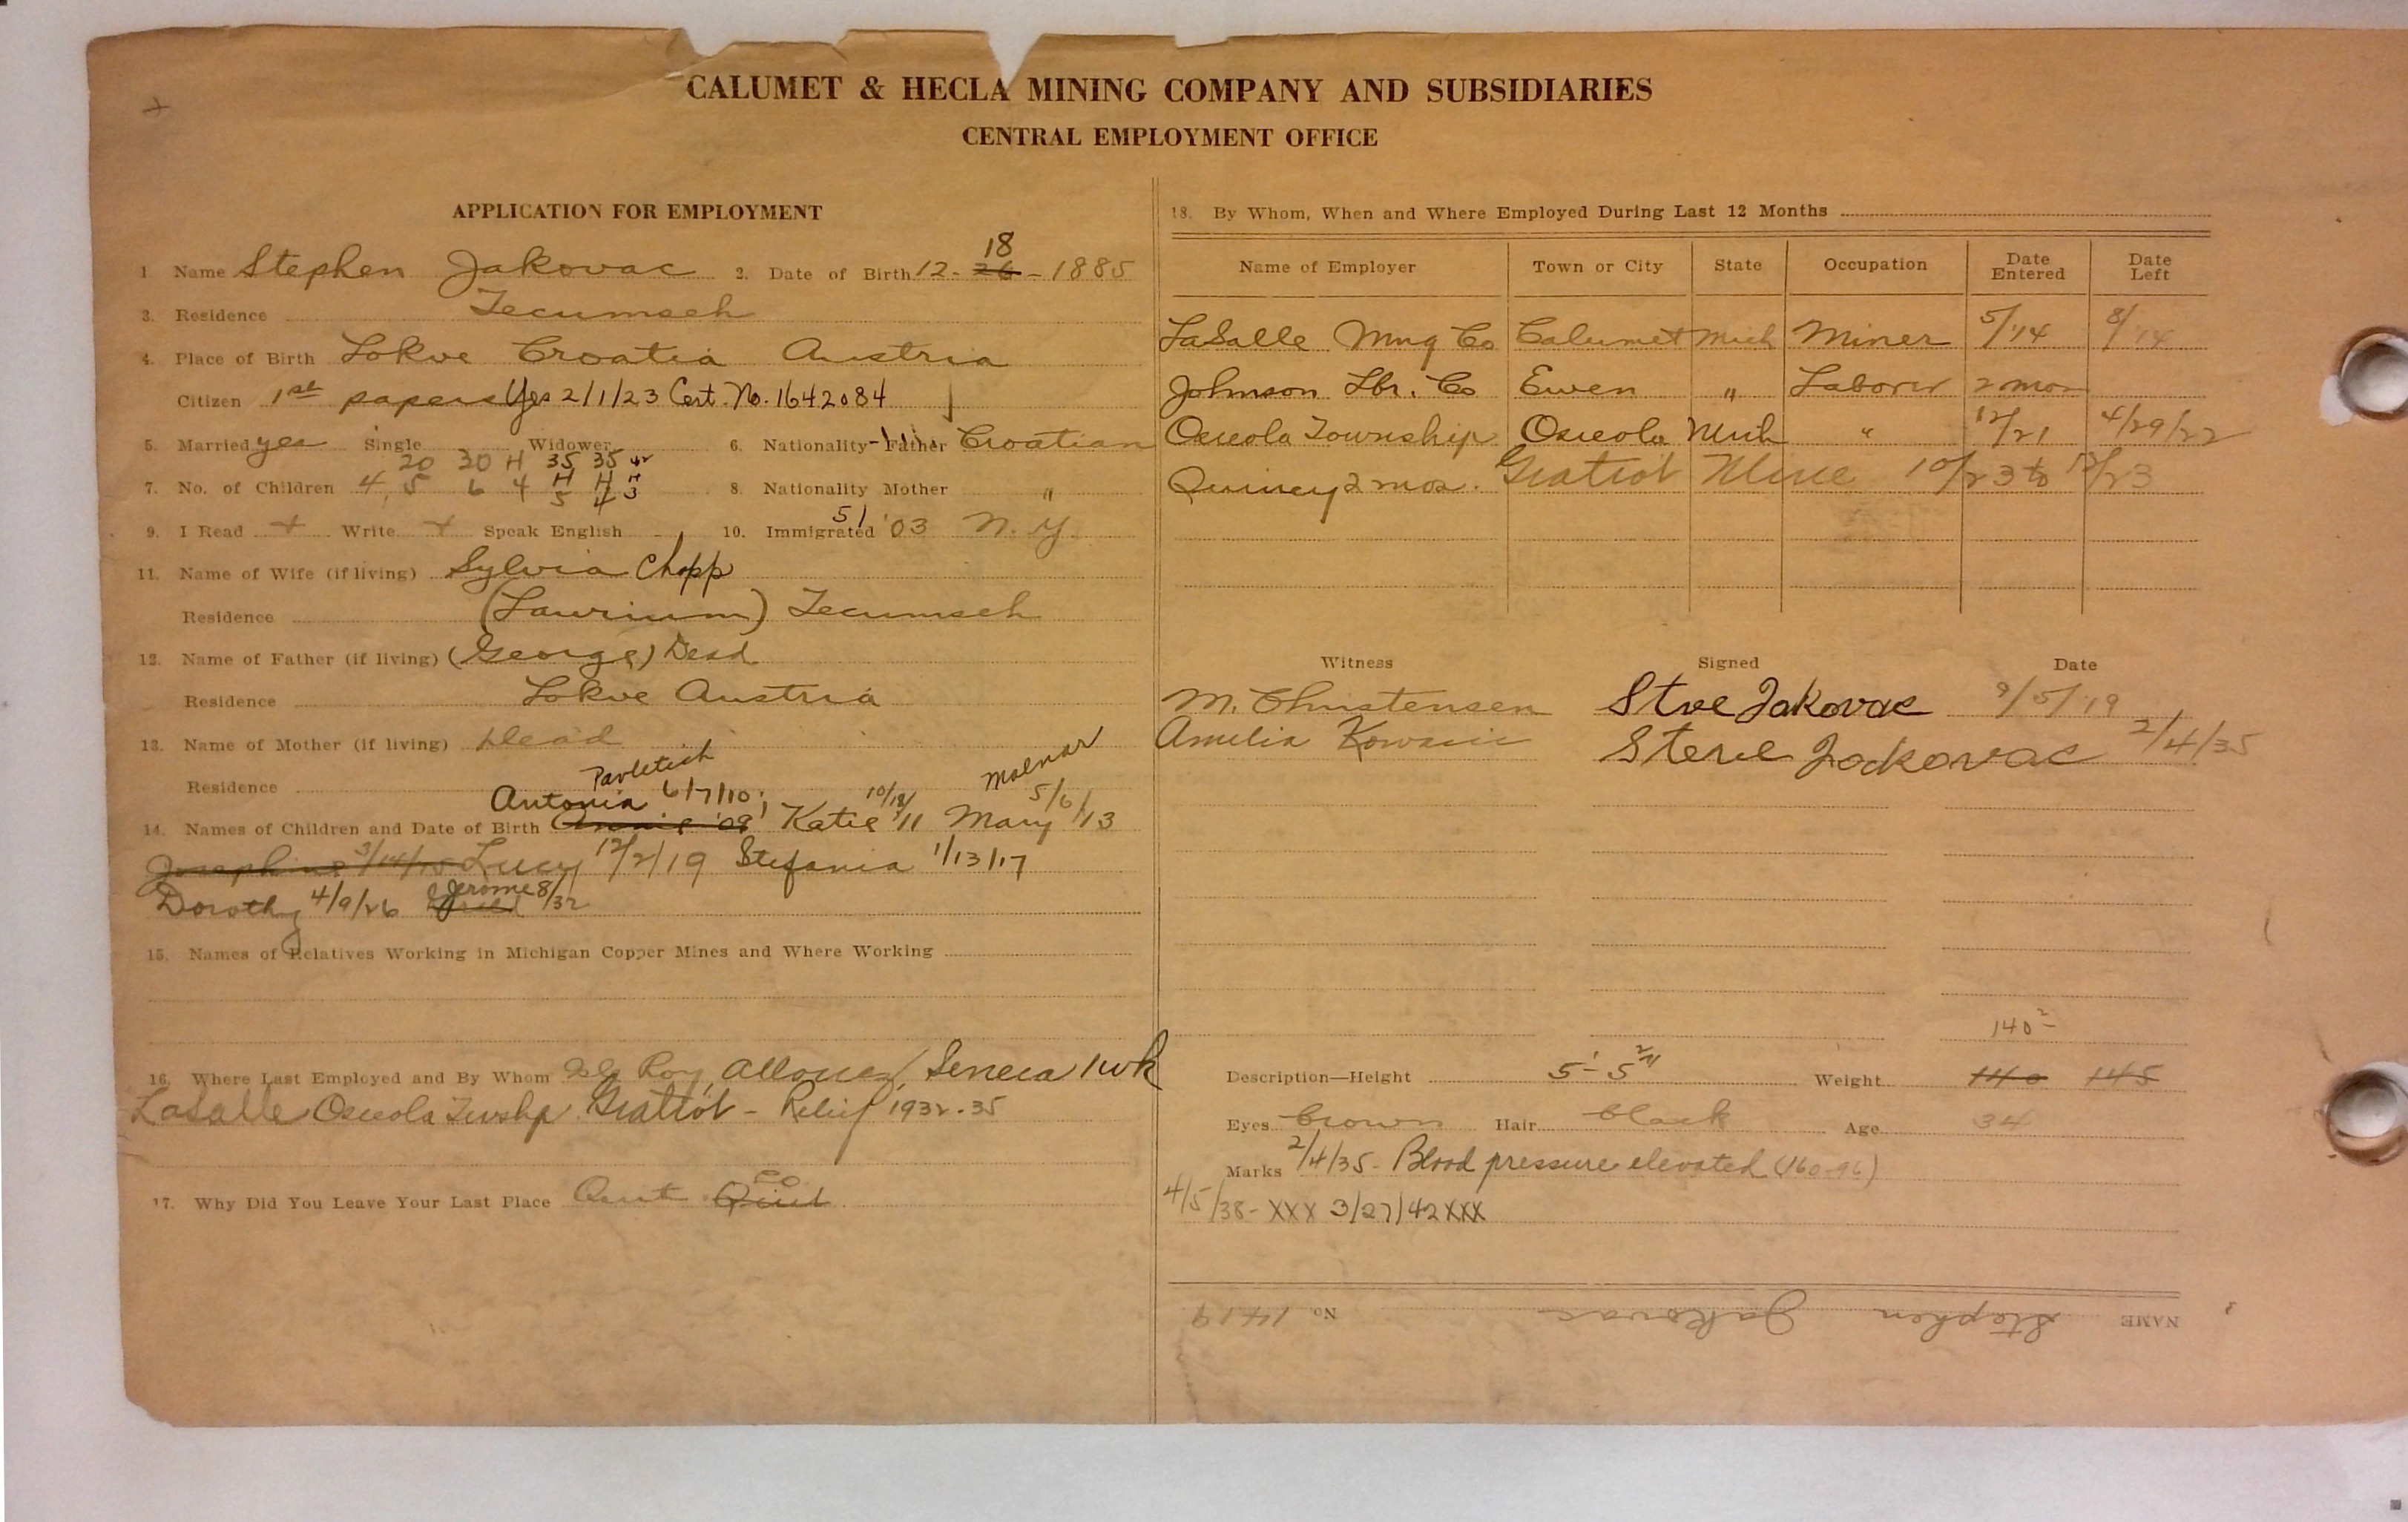 CALUMET & HECLA MINING COMPANY AND SUBSIDIARIES
CENTRAL EMPLOYMENT OFFICE
APPLICATION FOR EMPLOYMENT
18
1 Name Stephen Jakovac 2. Date of Birth 12- 26 - 1885
3. Residence Tecumseh
4. Place of Birth Lokve Croatia Austria
Citizen 1st papers Yes 2/1/23 Cert. No. 1642084
5. Married yes Single Widower 6. Nationality Father Croatian
20 30 H 35 35 42
7. No. of Children 4, 5 6 4 H H H 8. Nationality Mother "
5 4 3
9. I Read + Write + Speak English 10. Immigrated 5/ '03 N.Y.
11. Name of Wife (if living) Sylvia Chopp
Residence (Laurium) Tecumseh
12. Name of Father (if living) (George) Dead
Residence Lokve Austria
13. Name of Mother (if living) Dead
Pavletich Molnar
Residence
Antonia 6/7/10; 10/18/ 5/6/
14. Names of Children and Date of Birth Annie '08 Katie 11 Mary 13
Josephine 3/14/15 Lucy 12/2/19 Stefania 1/13/17
Dorothy 4/9/26 Jerome 8/32
15. Names of Relatives Working in Michigan Copper Mines and Where Working
16. Where Last Employed and By Whom Isle Roy, Allouez / Seneca 1 wk
LaSalle Osceola Twshp. Gratiot - Relief 1932-35
17. Why Did You Leave Your Last Place Quit Quit
18. By Whom, When and Where Employed During Last 12 Months
Name of Employer Town or City State Occupation Date Entered Date Left
LaSalle Mng Co Calumet Mich Miner 5/'14 8/'14
Johnson Lbr. Co Ewen " Laborer 2 mos
Osceola Township Osceola Mich " 12/21 4/29/22
Quincy 2 mos. Gratiot Mine 10/23 to 12/23
Witness Signed Date
M. Christensen Stve Jakovac 9/5/19
Amelia Kowacic Steve Jackovac 2/4/35
140 2-
Description—Height 5'-5 2/4" Weight 140 145
Eyes brown Hair black Age 34
Marks 2/4/35- Blood pressure elevated (160-96)
4/5/38- XXX 3/27/42 XXX
NAME Stephen Jakovac No 1419